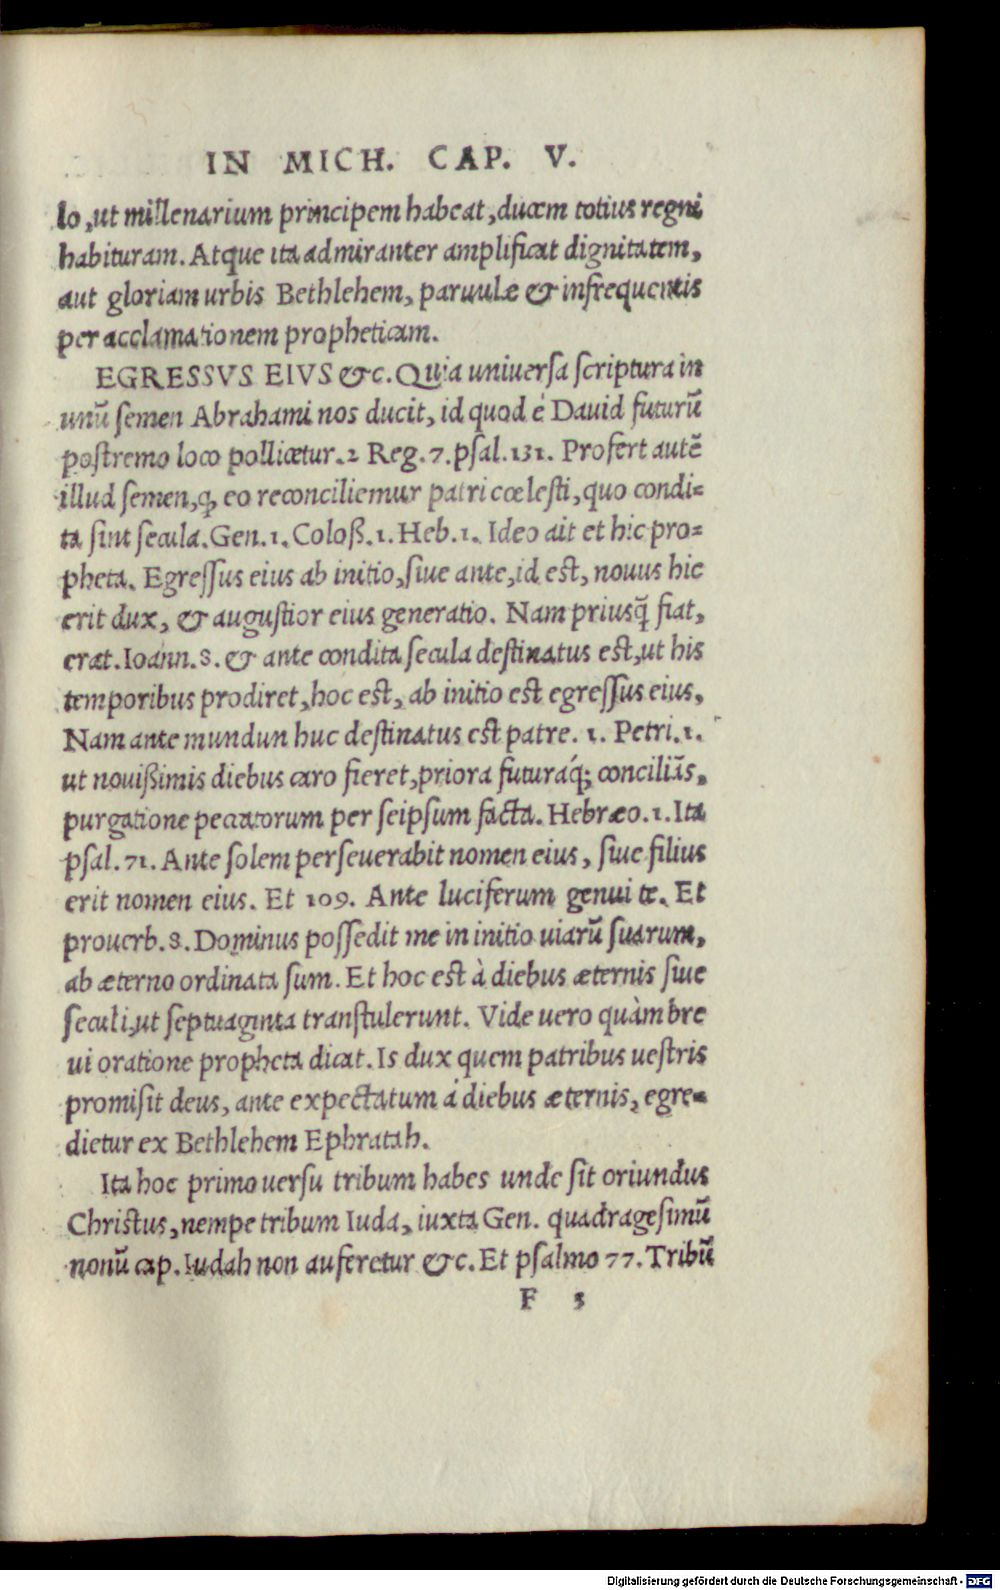 IN MICH. CAP. V.
lo, ut millenarium principem habeat, ducem totius regni
habituram. Atque ita admiranter amplificat dignitatem,
aut gloriam urbis Bethlehem, paruulæ & infrequentis
per acclamationem propheticam.
EGRESSVS EIVS &c. Quia uniuersa scriptura in
unũ semen Abrahami nos ducit, id quod è Dauid futurũ
postremo loco pollicetur. 2 Reg. 7. psal. 131. Profert autẽ
illud semen, ꝙ eo reconciliemur patri cœlesti, quo condi=
ta sint secula. Gen. 1. Coloß. 1. Heb. 1. Ideo ait et hic pro=
pheta. Egressus eius ab initio, siue ante, id est, nouus hic
erit dux, & augustior eius generatio. Nam priusq̃ fiat,
erat. Ioann. 8. & ante condita secula destinatus est, ut his
temporibus prodiret, hoc est, ab initio est egressus eius.
Nam ante mundun huc destinatus est patre. 1. Petri. 1.
ut nouißimis diebus caro fieret, priora futuraq́; conciliãs,
purgatione peccatorum per seipsum facta. Hebræo. 1. Ita
psal. 71. Ante solem perseuerabit nomen eius, siue filius
erit nomen eius. Et 109. Ante luciferum genui te. Et
prouerb. 8. Dominus possedit me in initio uiarũ suarum,
ab æterno ordinata sum. Et hoc est à diebus æternis siue
seculi, ut septuaginta transtulerunt. Vide uero quàm bre
ui oratione propheta dicat. Is dux quem patribus uestris
promisit deus, ante expectatum á diebus æternis, egre=
dietur ex Bethlehem Ephratah.
Ita hoc primo uersu tribum habes unde sit oriundus
Christus, nempe tribum Iuda, iuxta Gen. quadragesimũ
nonũ cap. Iudah non auferetur &c. Et psalmo 77. Tribũ
F 3
Digitalisierung gefördert durch die Deutsche Forschungsgemeinschaft - DFG